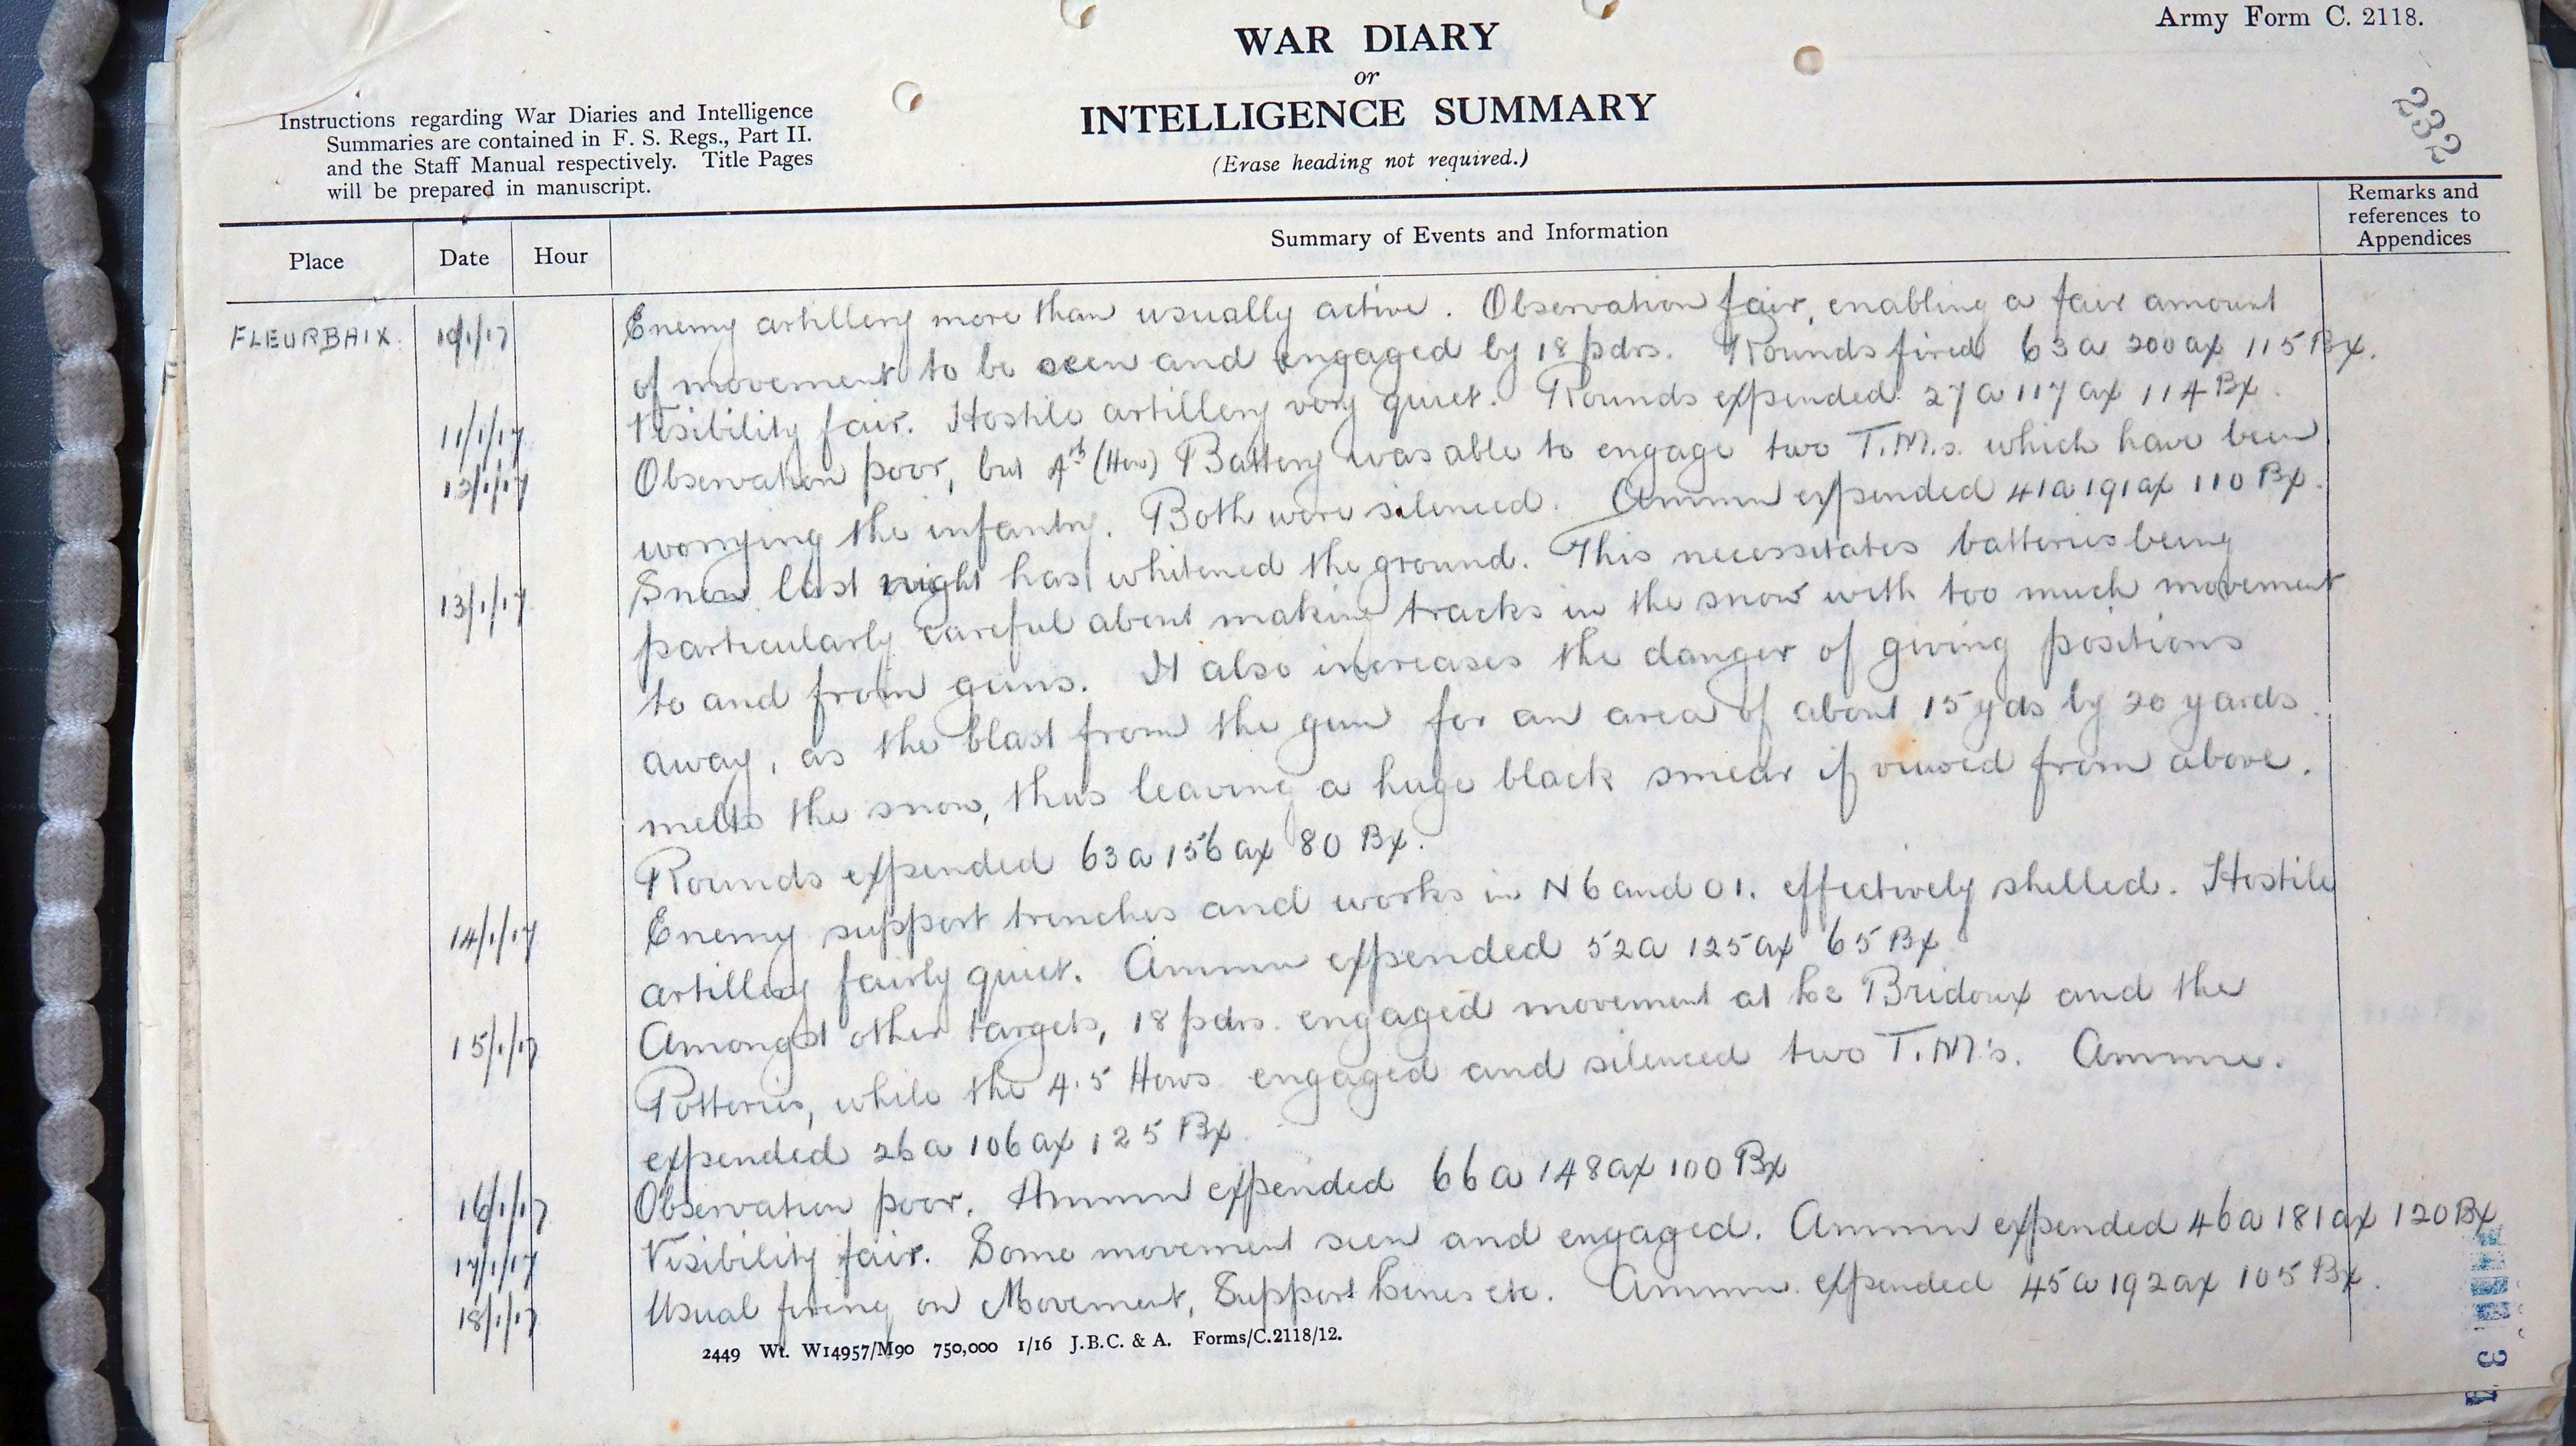 Army Form C. 2118.
WAR DIARY
or
INTELLIGENCE SUMMARY
(Erase heading not required.)
232
Instructions regarding War Diaries and Intelligence
Summaries are contained in F. S. Regs., Part II.
and the Staff Manual respectively. Title Pages
will be prepared in manuscript.
Place Date Hour Summary of Events and Information Remarks and
references to
Appendices
FLEURBAIX. 10/1/17 Enemy artillery more than usually active. Observation fair, enabling a fair amount
of movement to be seen and engaged by 18 pdrs. Rounds fired 63 a 200 ax 115 Bx.
11/1/17 Visibility fair. Hostile artillery very quiet. Rounds expended 27 a 117 ax 114 Bx.
12/1/17 Observation poor, but 4th (How) Battery was able to engage two T.M.s. which have been
worrying the infantry. Both were silenced. Ammn expended 41 a 191 ax 110 Bx.
13/1/17 Snow last night has whitened the ground. This necessitates batteries being
particularly careful about making tracks in the snow with too much movement
to and from guns. It also increases the danger of giving positions
away, as the blast from the gun for an area of about 15 yds by 20 yards
melts the snow, thus leaving a huge black smear if viewed from above.
Rounds expended 63 a 156 ax 80 Bx.
14/1/17 Enemy support trenches and works in N6 and O1. effectively shelled. Hostile
artillery fairly quiet. Ammn expended 52 a 125 ax 65 Bx
15/1/17 Amongst other targets, 18 pdrs. engaged movement at Le Bridoux and the
Potteries, while the 4.5 Hows engaged and silenced two T.M's. Ammn.
expended 26 a 106 ax 125 Bx.
16/1/17 Observation poor. Ammn expended 66 a 148 ax 100 Bx
17/1/17 Visibility fair. Some movement seen and engaged. Ammn expended 46 a 181 ax 120 Bx
18/1/17 Usual firing on Movement, Support Lines etc. Ammn. expended 45 a 192 ax 105 Bx.
2449 Wt. W14957/M90 750,000 1/16 J.B.C. & A. Forms/C.2118/12.
3